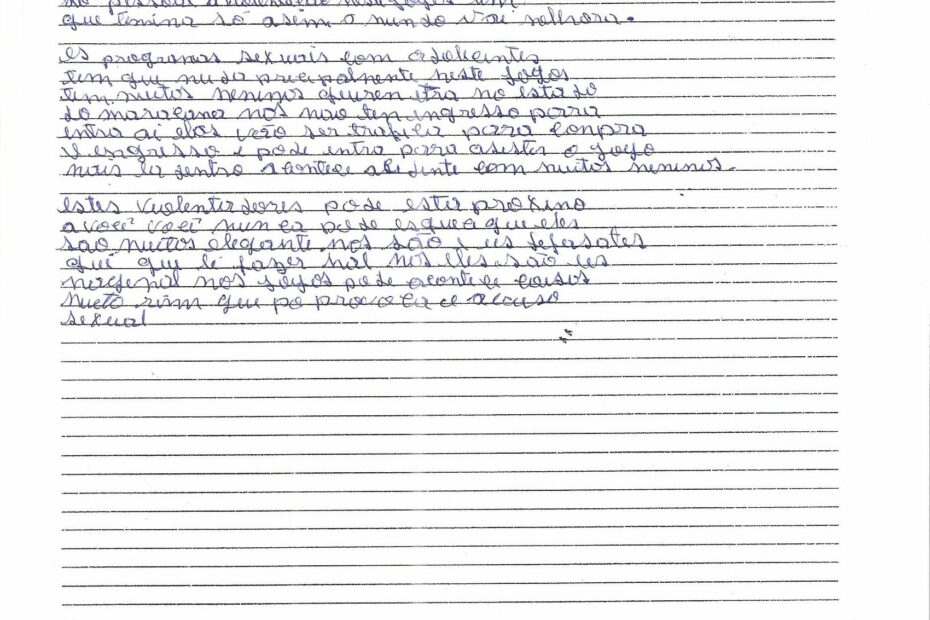 que timina só asim o mundo vai melhora.
es programas sexuais com adolecentes
tem que muda precipalmente neste jogos
tem muitos meninos queren itra no estadio
do maracana nos não ten ingresso para
entra ai elos vão ser trafica para conpra
o ingresso e pode entra para asester o jogo
mais la dentro acontece acidente com muitos meninos.
estes violentadores pode estar proximo
a você você nunca pode esqueça que eles
são muitos elegante nos são
que que le fazer mal nos eles são
nos jogos pode acontece casos
mueto rim que po provoca o acuso
sexual